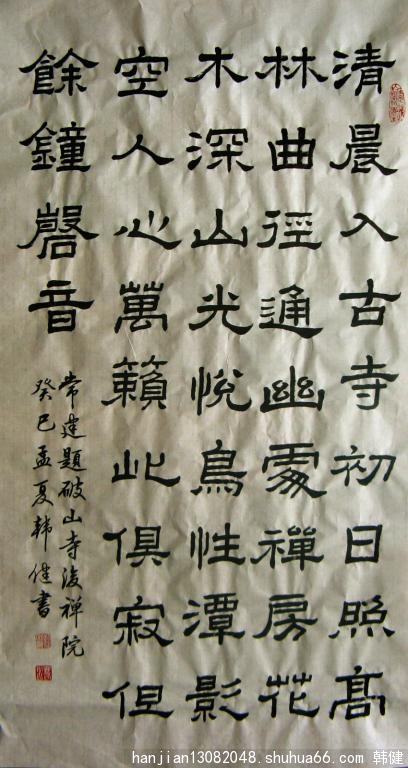 清晨入古寺初日照髙
林曲徑通幽處禪房花
木深山光悅鳥性潭影
空人心萬籟此俱寂但
餘鐘磬音
常建題破山寺後禪院
癸巳孟夏韩健書
hanjian13082048.shuhua66.com 韩健